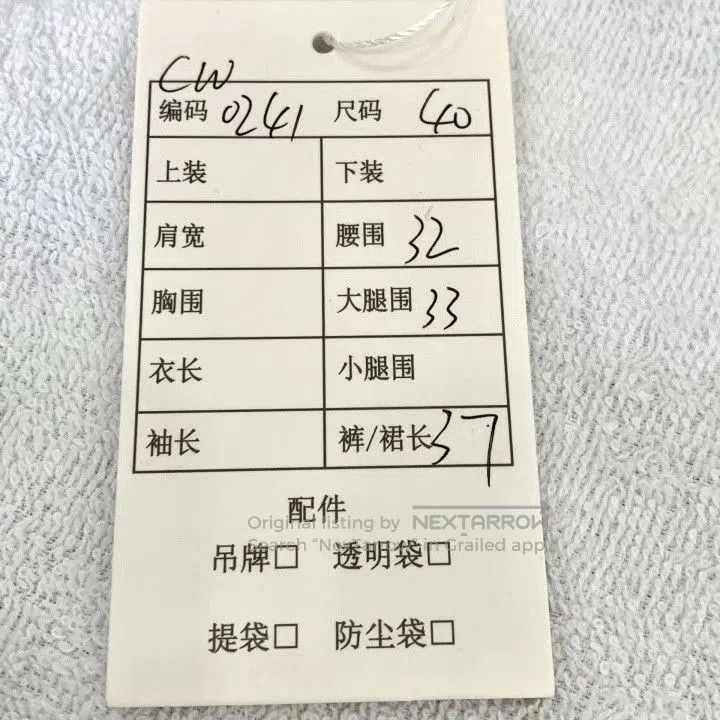 CW
编码 0241 尺码 40
上装 下装
肩宽 腰围 32
胸围 大腿围 33
衣长 小腿围
袖长 裤/裙长 37
配件
Original listing by NEXTARROW
Search "NexTarrow" in Grailed app
吊牌□ 透明袋□
提袋□ 防尘袋□